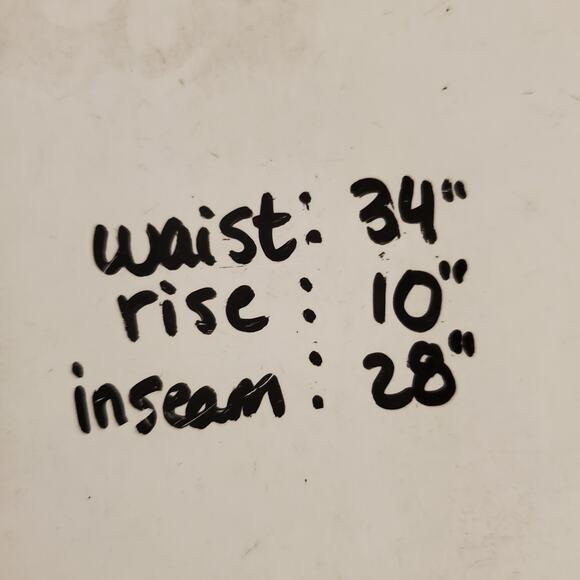 waist: 34"
rise: 10"
inseam: 28"